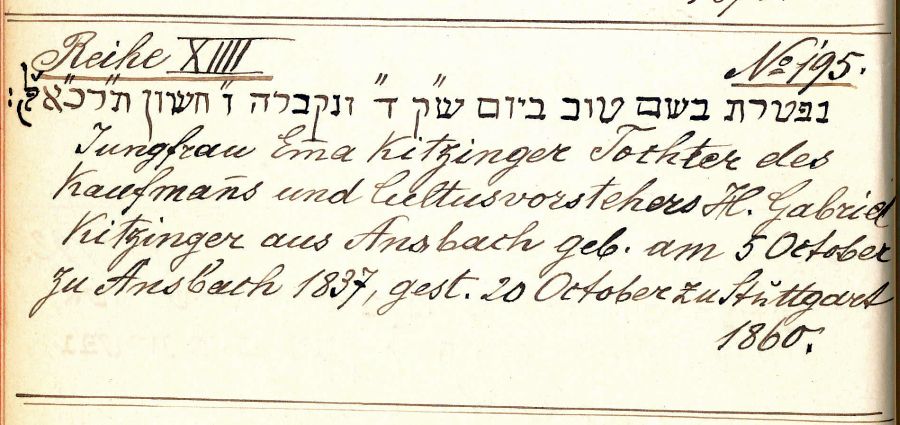 Reihe XIIII No 195.
נפטרת בשם טוב ביום ש״ק ד״ ונקברה ו״ חשון ת״רכ״א לפ״ק:
Jungfrau Em̄a Kitzinger Tochter des
Kaufman̄s und Cultusvorstehers H. Gabriel
Kitzinger aus Ansbach geb. am 5 October
zu Ansbach 1837, gest. 20 October zu Stuttgart
1860.